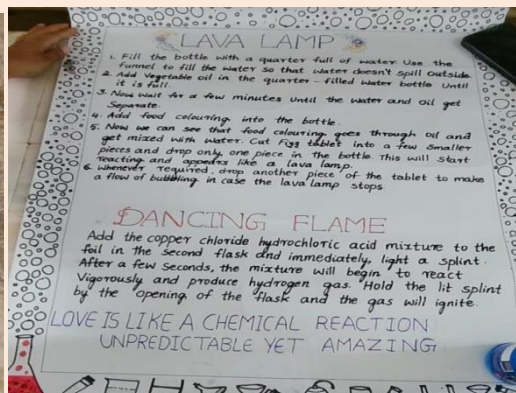 LAVA LAMP
1. Fill the bottle with a quarter full of water use the
funnel to fill the water so that water doesn't spill outside.
2. Add vegetable oil in the quarter - filled water bottle until
it is full.
3. Now wait for a few minutes until the water and oil get
separate.
4. Add food colouring into the bottle.
5. Now we can see that food colouring goes through oil and
get mixed with water. Cut Fizz tablet into a few smaller
pieces and drop only one piece in the bottle. This will start
reacting and appears like a lava lamp.
6. Whenever required, drop another piece of the tablet to make
a flow of bubbling in case the lava lamp stops.
DANCING FLAME
Add the copper chloride hydrochloric acid mixture to the
foil in the second flask and immediately, light a splint.
After a few seconds, the mixture will begin to react
Vigorously and produce hydrogen gas. Hold the lit splint
by the opening of the flask and the gas will ignite.
LOVE IS LIKE A CHEMICAL REACTION
UNPREDICTABLE YET AMAZING